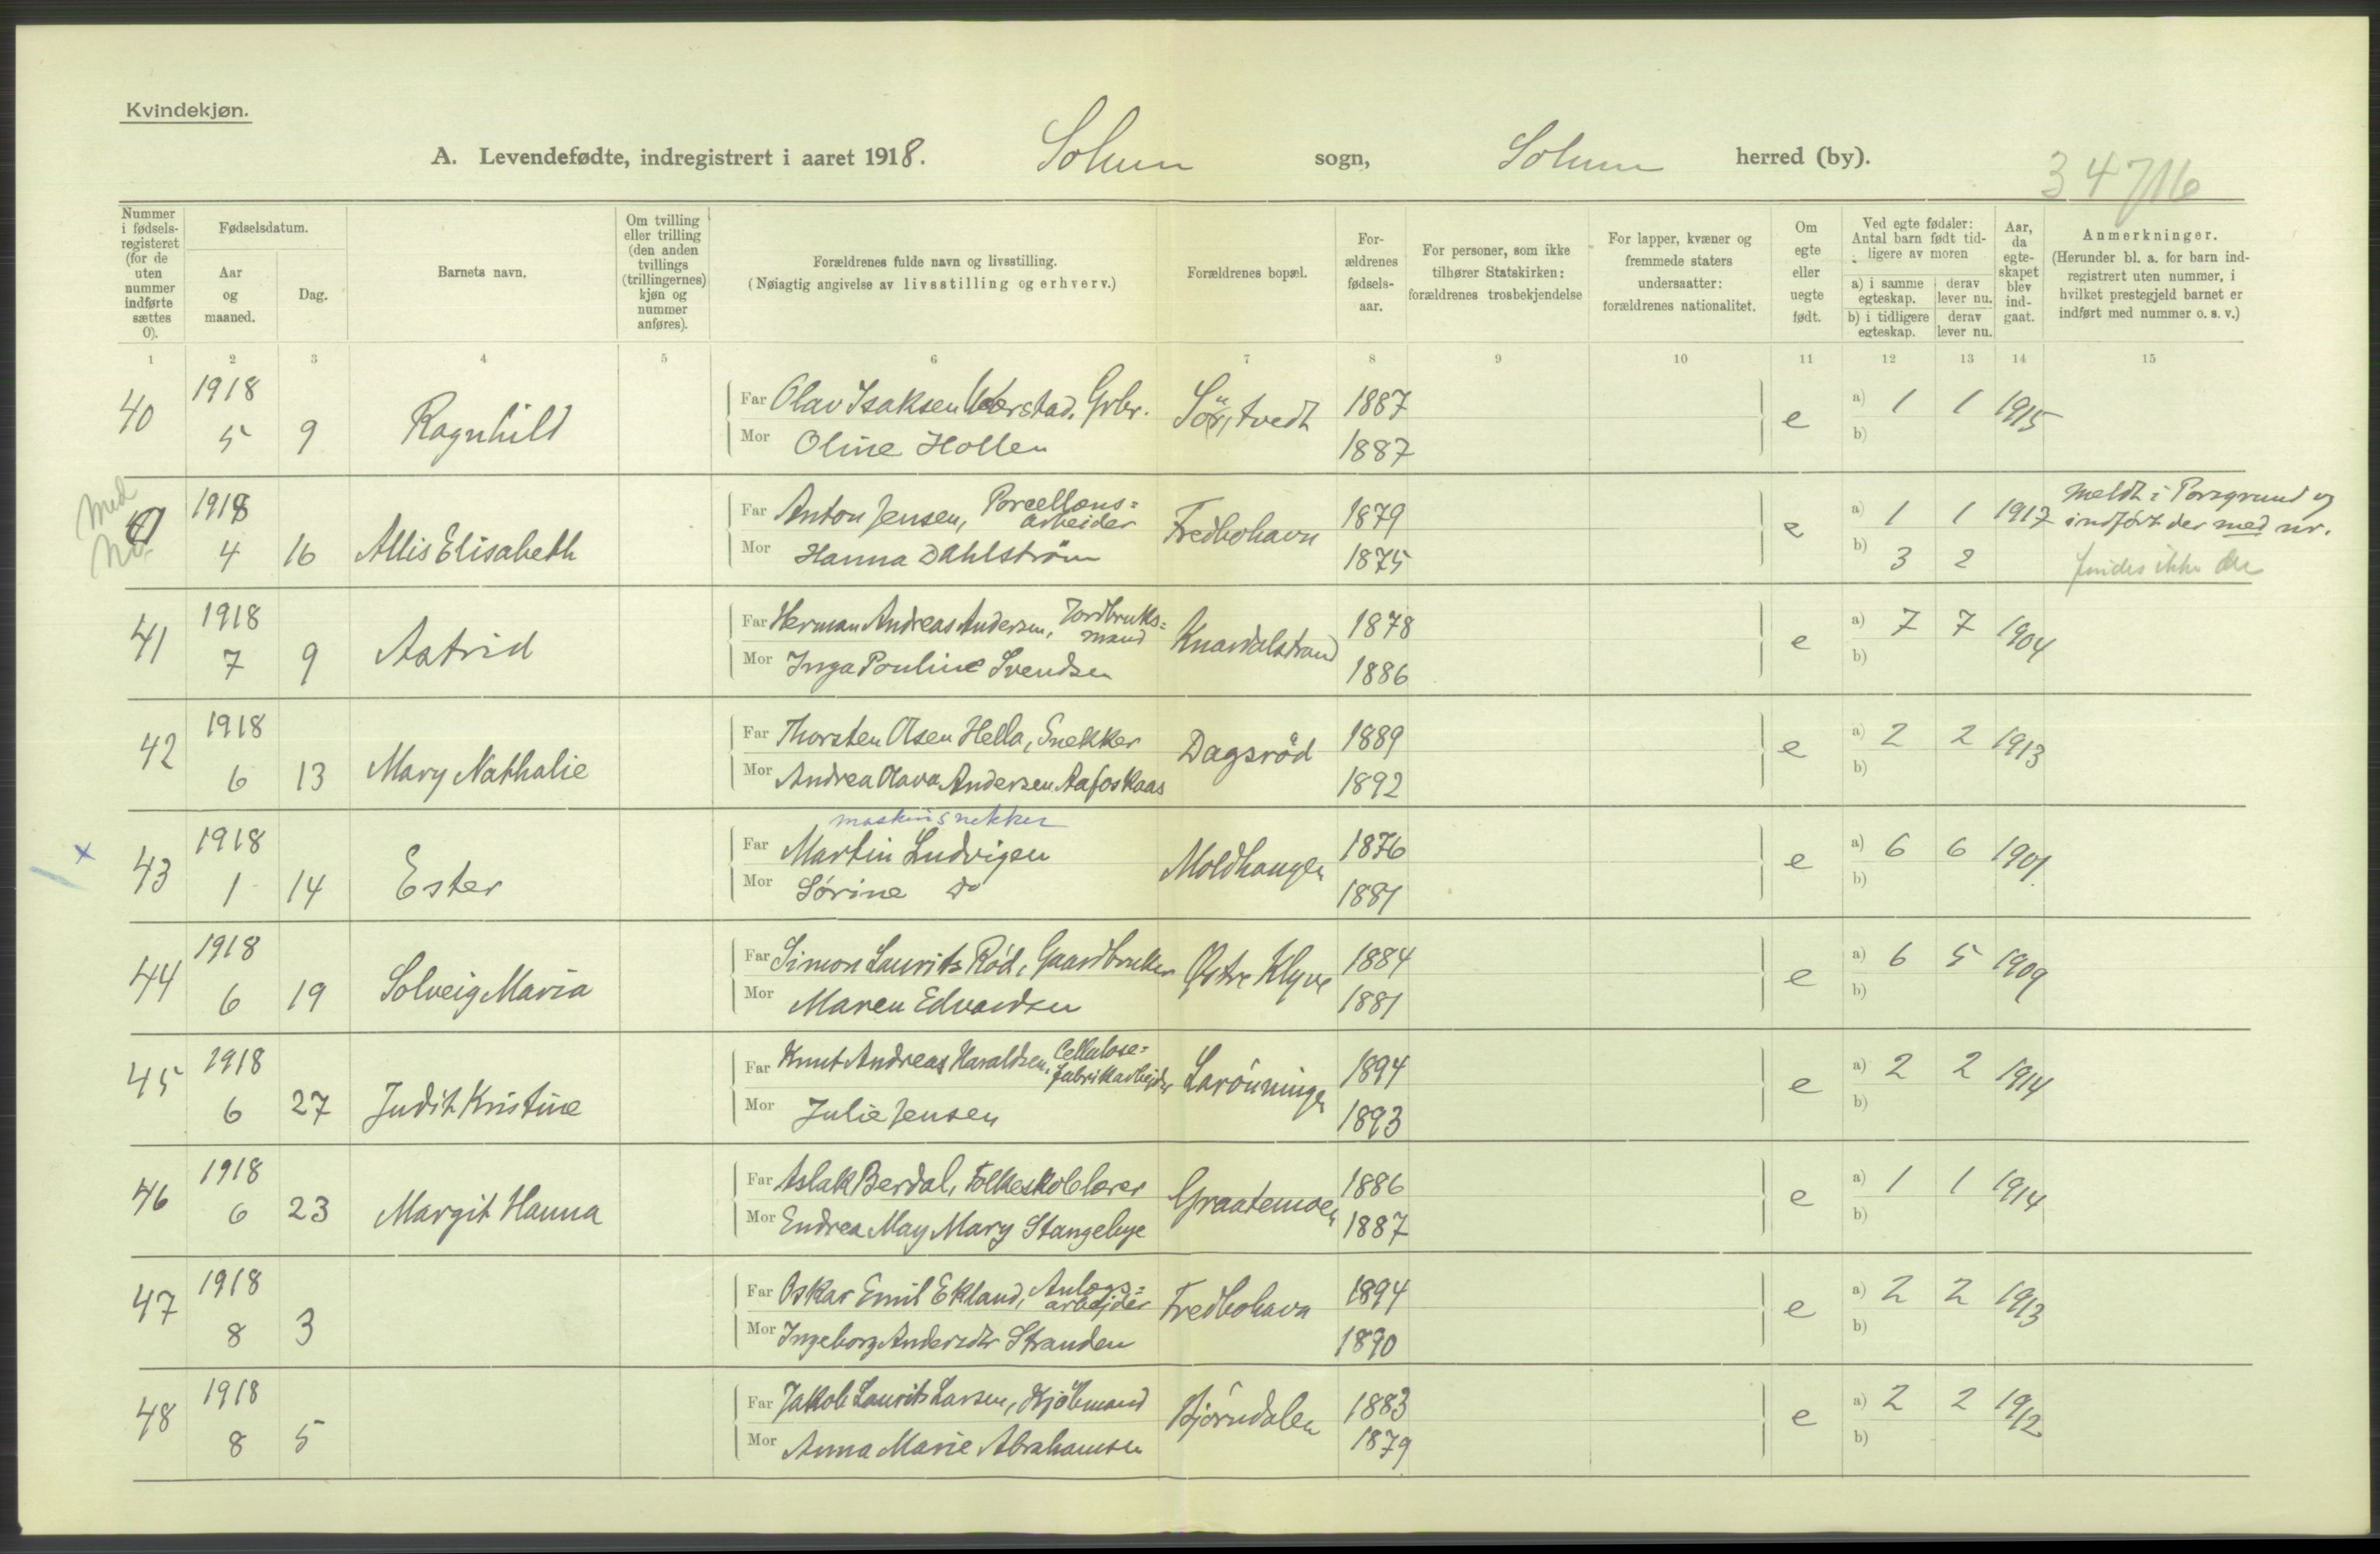 Kvindekjøn.
A. Levendefødte, indregistrert i aaret 1918. Solum sogn, Solum herred (by).
34716
Nummer i fødsels-registeret (for de uten nummer indførte sættes 0).
Fødselsdatum.
Aar og maaned.
Dag.
Barnets navn.
Om tvilling eller trilling (den anden tvillings (trillingernes) kjøn og nummer anføres).
Forældrenes fulde navn og livsstilling.
(Nøiagtig angivelse av livsstilling og erhverv.)
Forældrenes bopæl.
For-ældrenes fødsels-aar.
For personer, som ikke tilhører Statskirken: forældrenes trosbekjendelse
For lapper, kvæner og fremmede staters undersaatter: forældrenes nationalitet.
Om egte eller uegte født.
Ved egte fødsler: Antal barn født tid-ligere av moren
a) i samme egteskap. derav lever nu.
b) i tidligere egteskap. derav lever nu.
Aar, da egte-skapet blev ind-gaat.
Anmerkninger.
(Herunder bl. a. for barn ind-registrert uten nummer, i hvilket prestegjeld barnet er indført med nummer o. s. v.)
1 2 3 4 5 6 7 8 9 10 11 12 13 14 15
40 1918 5 9 Ragnhild
Far Olav Isaksen Grbr. 1887 e a) 1 1 1915
Mor Oline Hollen 1887 b)
Med No.
0 1918 4 16 Allis Elisabeth
Far Anton Jensen, Porcellæns=arbeider Fredbohavn 1879 e a) 1 1 1917 meldt i Porsgrund og indført der med nr.
Mor Hanna Dahlström 1875 b) 3 2 findes ikke der
41 1918 7 9 Astrid
Far Herman Andreas Andersen, Jordbruks=mand Knardalstrand 1878 e a) 7 7 1904
Mor Inga Pouline Svendsen 1886 b)
42 1918 6 13 Mary Nathalie
Far Thorsten Olsen Hella, Snekker Dagsrød 1889 e a) 2 2 1913
Mor Andrea Olava Andersen Aafoskaas 1892 b)
maskinsnekker
x 43 1918 1 14 Ester
Far Martin Ludvigsen Moldhaugen 1876 e a) 6 6 1901
Mor Sørine Do 1881 b)
44 1918 6 19 Solveig Maria
Far Simon Laurits Rød, Gaardbruker Østre Klyve 1884 e a) 6 5 1909
Mor Maren Edvardsen 1881 b)
45 1918 6 27 Judit Kristine
Far Knut Andreas Haraldsen, Cellulose=fabrikarbeider Larönningen 1894 e a) 2 2 1914
Mor Julie Jensen 1893 b)
46 1918 6 23 Margit Hanna
Far Aslak Berdal, Folkeskolelærer Graatenmoen 1886 e a) 1 1 1914
Mor Endrea May Mary Stangebye 1887 b)
47 1918 8 3
Far Oskar Emil Ekland, Anlægs=arbeider Fredbohavn 1894 e a) 2 2 1913
Mor Ingeborg Andersdtr Stranden 1890 b)
48 1918 8 5
Far Jakob Laurits Larsen, Kjöbmand Bjørndalen 1883 e a) 2 2 1912
Mor Anna Marie Abrahamsen 1879 b)